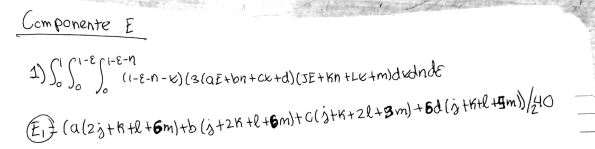 Componente E
1) ∫₀¹ ∫₀^{1-ε} ∫₀^{1-ε-n} (1-ε-n-x)(3(aε+bn+cx+d)(Jε+Kn+Lx+m)dxdndε
E₁ = (a(2j+k+l+6m)+b(j+2k+l+6m)+c(j+k+2l+3m)+6d(j+k+l+5m))/240